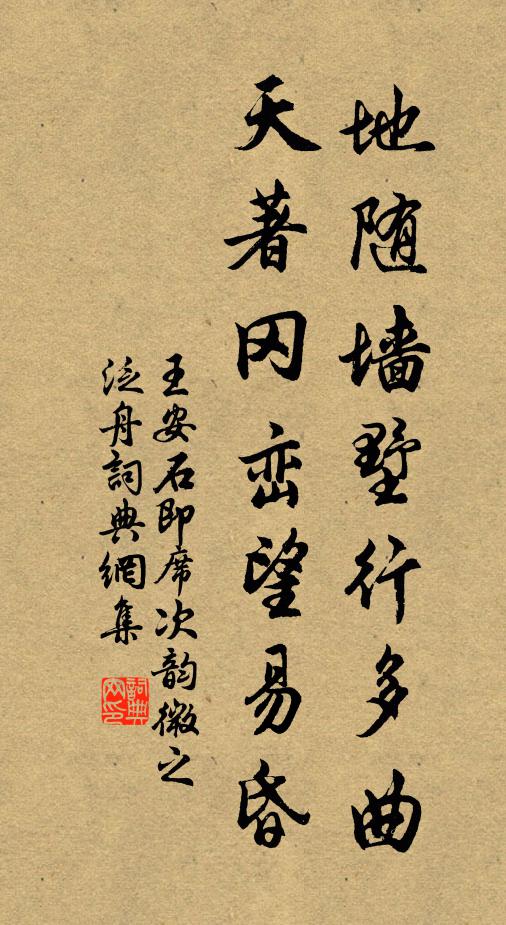 地随墙墅行多曲
天著冈峦望易昏
王安石即席次韵微之
泛舟詞典網集
詞典网印